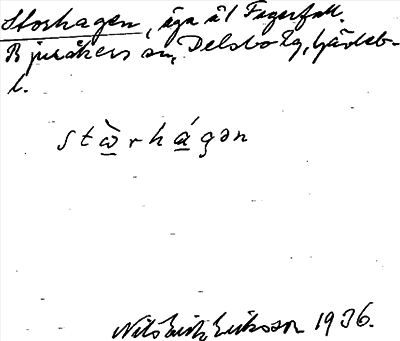 Storhagen, äga åt Fagerfall.
Bjuråkers sn, Delsbo tg, Gävleb-
l.
stὼ̲rhá̲gən
Nils Erik Eriksson 1936.